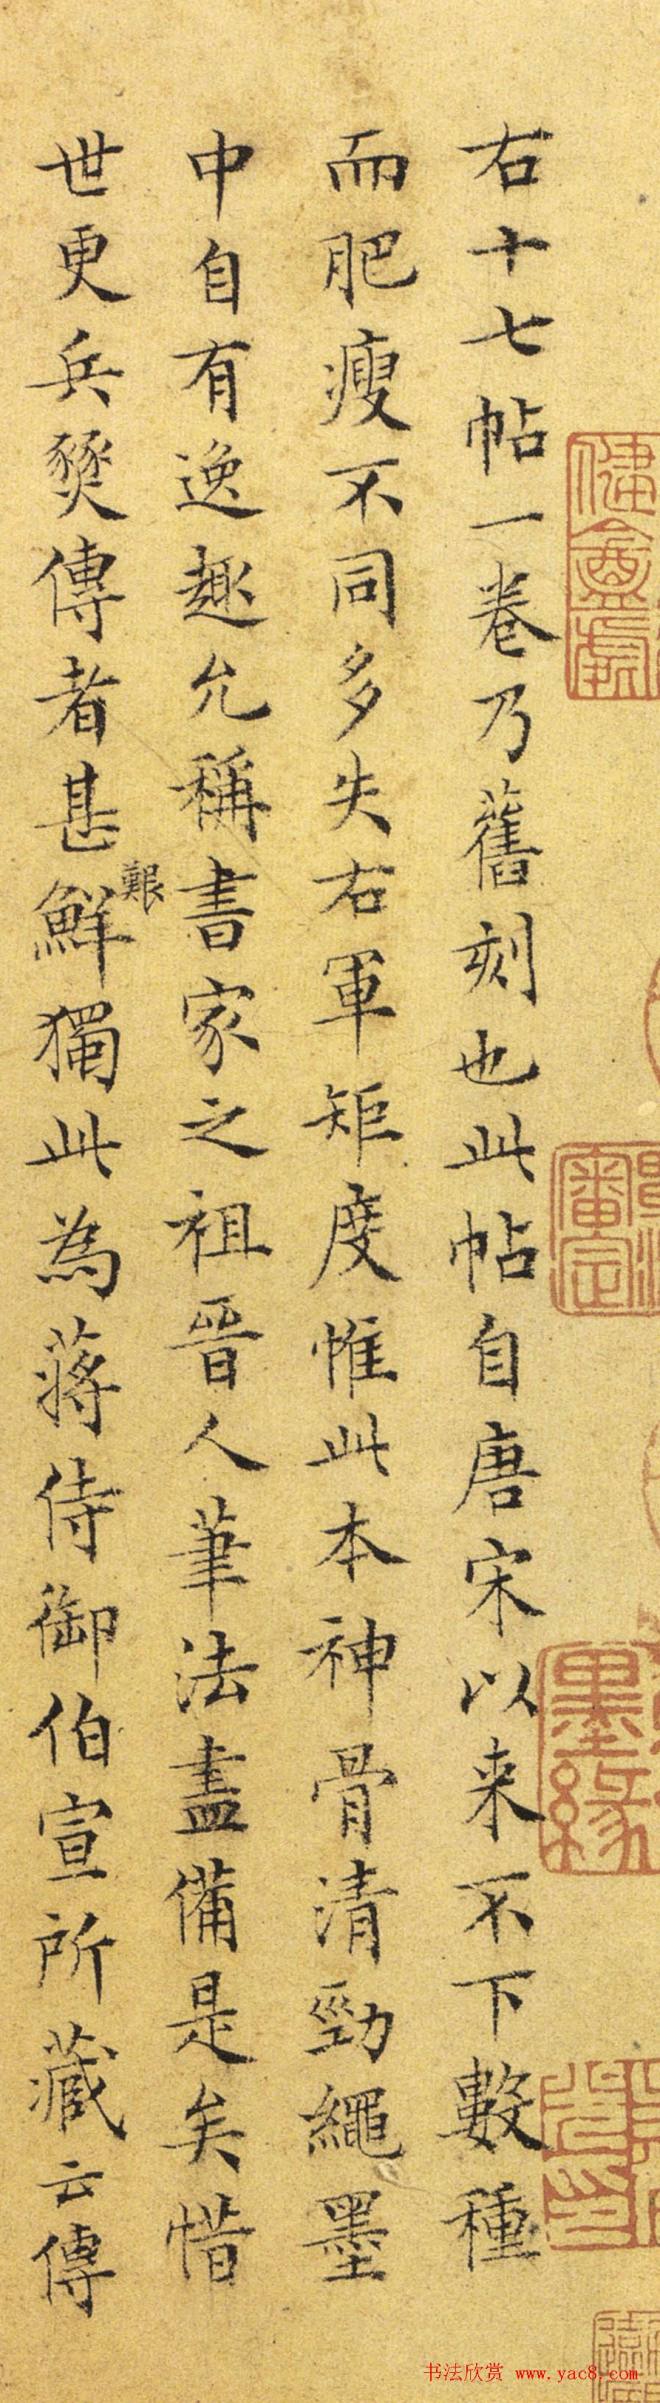 右十七帖一卷乃舊刻也此帖自唐宋以来不下數種
而肥瘦不同多失右軍矩度惟此本神骨清勁繩墨
中自有逸趣允稱書家之祖晉人筆法盡備是矣惜
世更兵燹傳者甚鮮獨此為蔣侍御伯宣所藏云傳
艱
墨緣
審定
书法欣赏 www.yac8.com